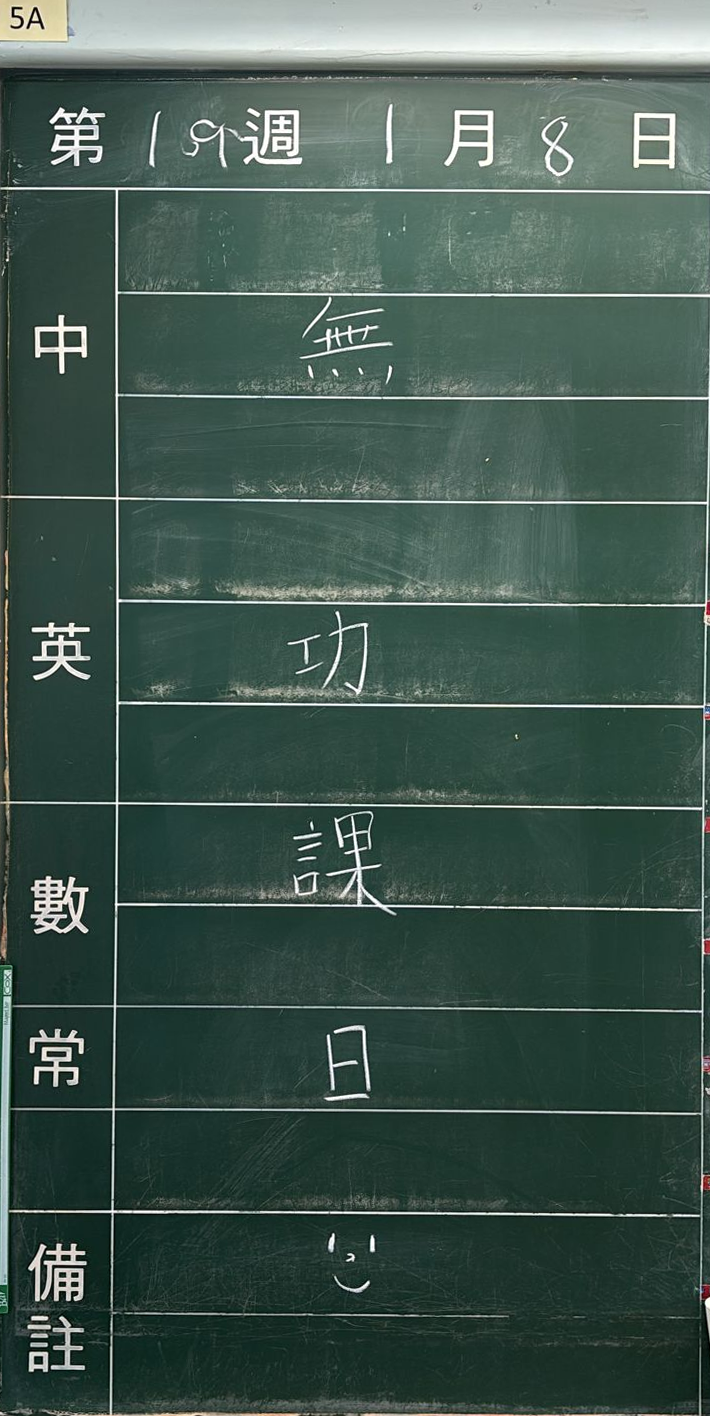 5A
第19週 1月8日
中
無
英
功
課
數
常
日
備
註